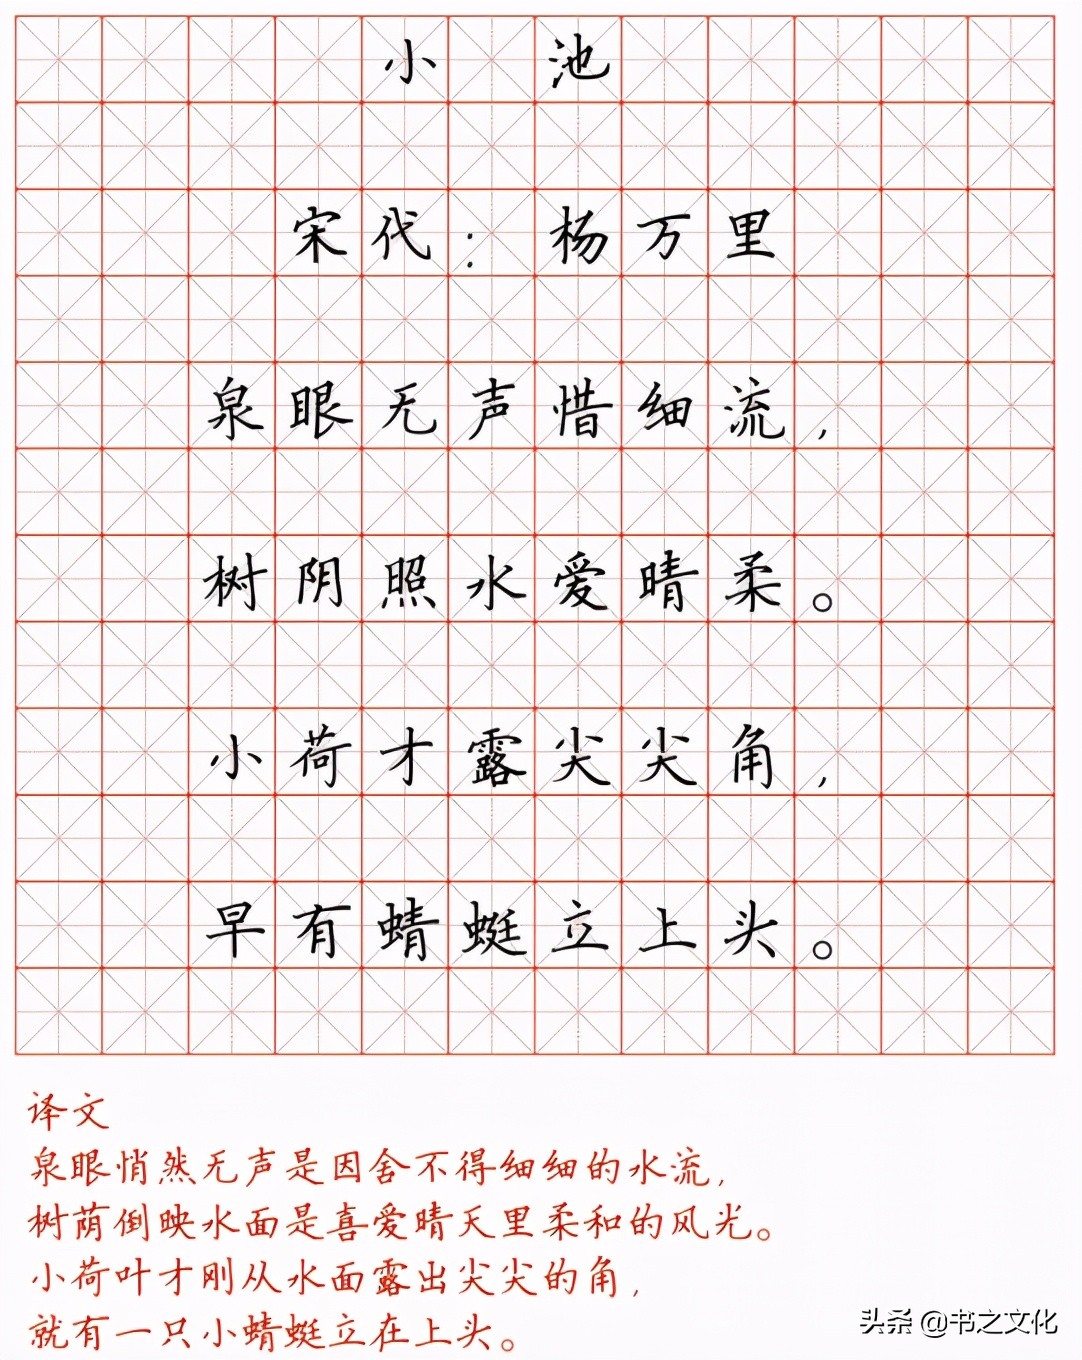 小 池
宋代：杨万里
泉眼无声惜细流，
树阴照水爱晴柔。
小荷才露尖尖角，
早有蜻蜓立上头。
译文
泉眼悄然无声是因舍不得细细的水流，
树荫倒映水面是喜爱晴天里柔和的风光。
小荷叶才刚从水面露出尖尖的角，
就有一只小蜻蜓立在上头。
头条 @书之文化